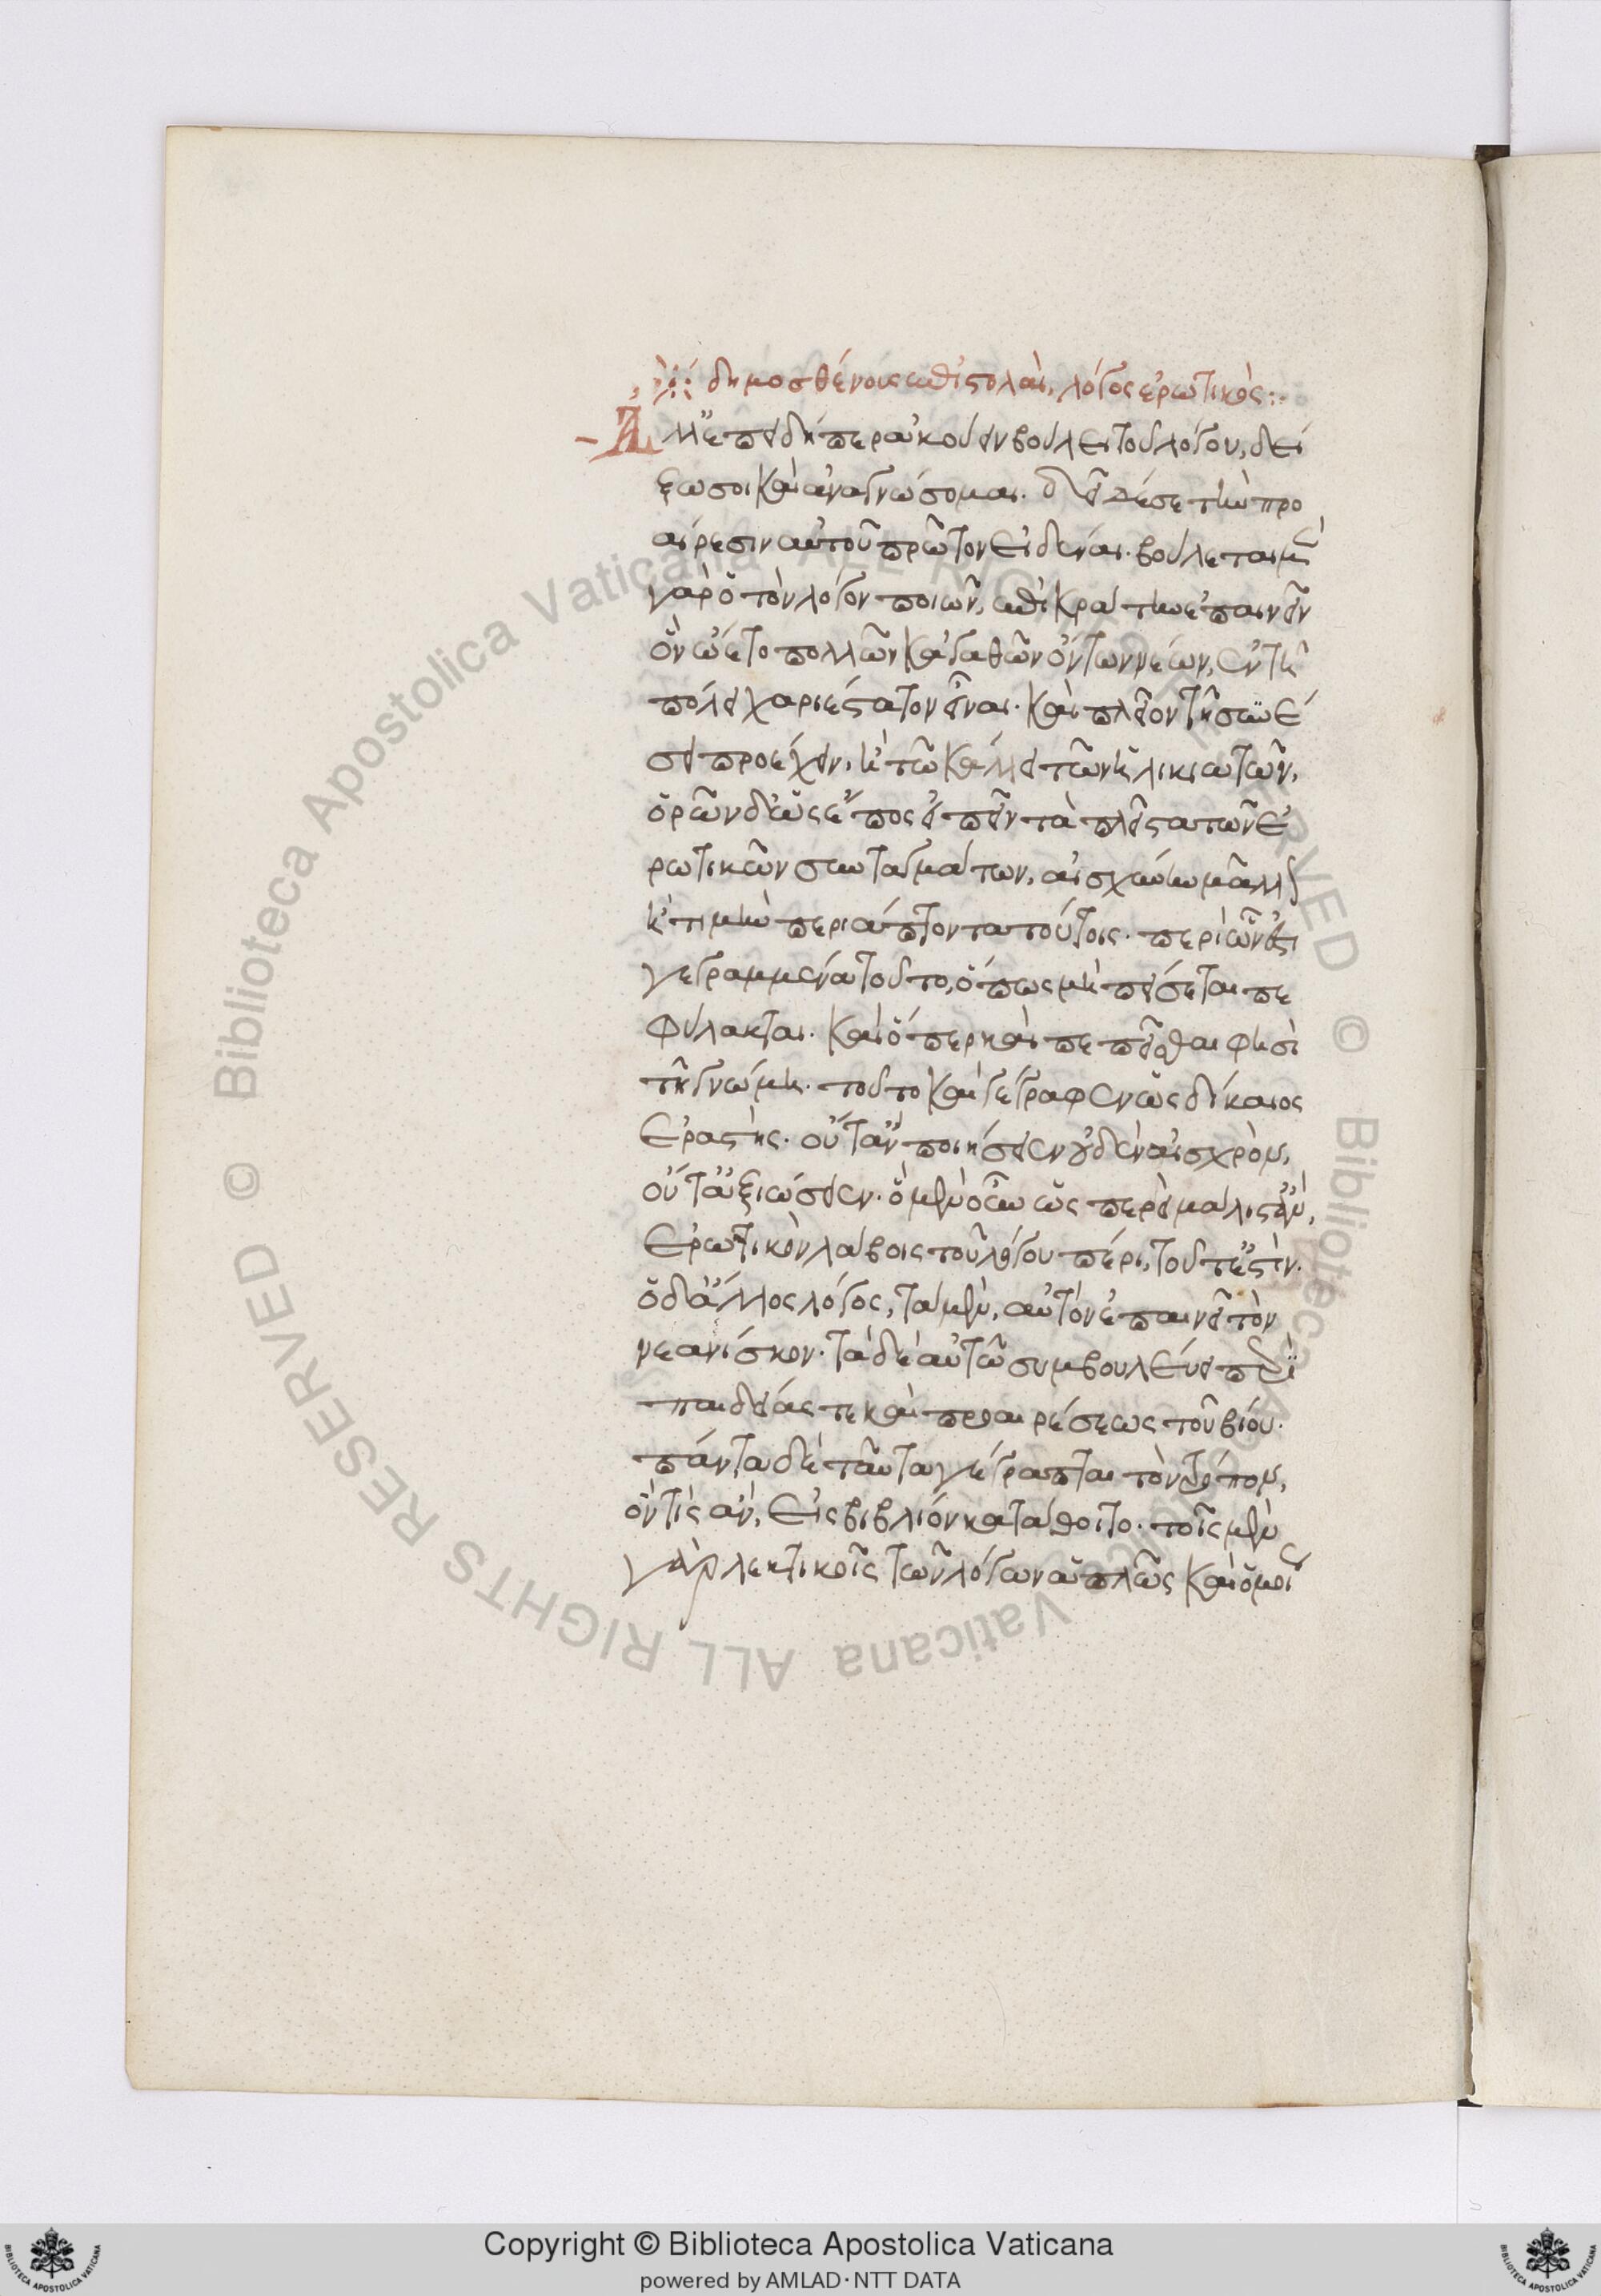 δημοσθένους ἐπιστολαὶ, λόγος ἐρωτικός:
Ἀλλ' ἐπειδήπερ ἀκούειν βούλει τοῦ λόγου, δεί
ξω σοι καὶ ἀναγνώσομαι. δεῖ δέ σε τὴν προ
αίρεσιν αὐτοῦ πρῶτον εἰδέναι. βούλεται μὲν
γὰρ ὁ τὸν λόγον ποιῶν, ἐπικράτην ἐπαινεῖν
ὃν ᾤετο πολλῶν κἀγαθῶν ὄντων νέων, ἐν τῆ
πόλει χαριέστατον εἶναι. καὶ πλεῖον τῆ συνέ
σει προέχειν, ἢ τῶ κάλλει τῶν ἡλικιωτῶν,
ὁρῶν δ' ὡς ἔπος εἰπεῖν τὰ πλεῖστα τῶν ἐ
ρωτικῶν συνταγμάτων, αἰσχύνην μᾶλλον
ἢ τιμὴν περιάπτοντα τούτοις. περὶ ὧν ἐστι
γεγραμμένα τοῦτο, ὅπως μὴ πείσεται πε
φύλακται. καὶ ὅπερ καὶ πεπεῖσθαι φησὶ
τῆ γνώμη. τοῦτο καὶ γέγραφεν ὡς δίκαιος
ἐραστὴς. οὔτ' ἂν ποιήσειεν οὐδὲν αἰσχρὸν,
οὔτ' ἀξιώσειεν. ὃ μὲν οὖν ὥσπερεὶ μάλιστ' ἂν,
ἐρωτικὸν λάβοις τοῦ λόγου πέρι, τοῦτ' ἔστὶν.
ὁ δ' ἄλλος λόγος, τὰ μὲν, αὐτὸν ἐπαινεῖ τὸν
νεανίσκον. τὰ δὲ αὐτῶ συμβουλεύει περὶ
παιδείας τε καὶ προαιρέσεως τοῦ βίου.
πάντα δὲ ταῦτα γέγραπται τὸν τρόπον,
ὅν τὶς ἂν, εἰς βιβλιον καταθοῖτο. τοῖς μὲν
γὰρ λεκτικοῖς τῶν λόγων ἁπλῶς καὶ ὁμοί
Copyright © Biblioteca Apostolica Vaticana
powered by AMLAD·NTT DATA
© Biblioteca Apostolica Vaticana ALL RIGHTS RESERVED © Biblioteca Apostolica Vaticana ALL RIGHTS RESERVED